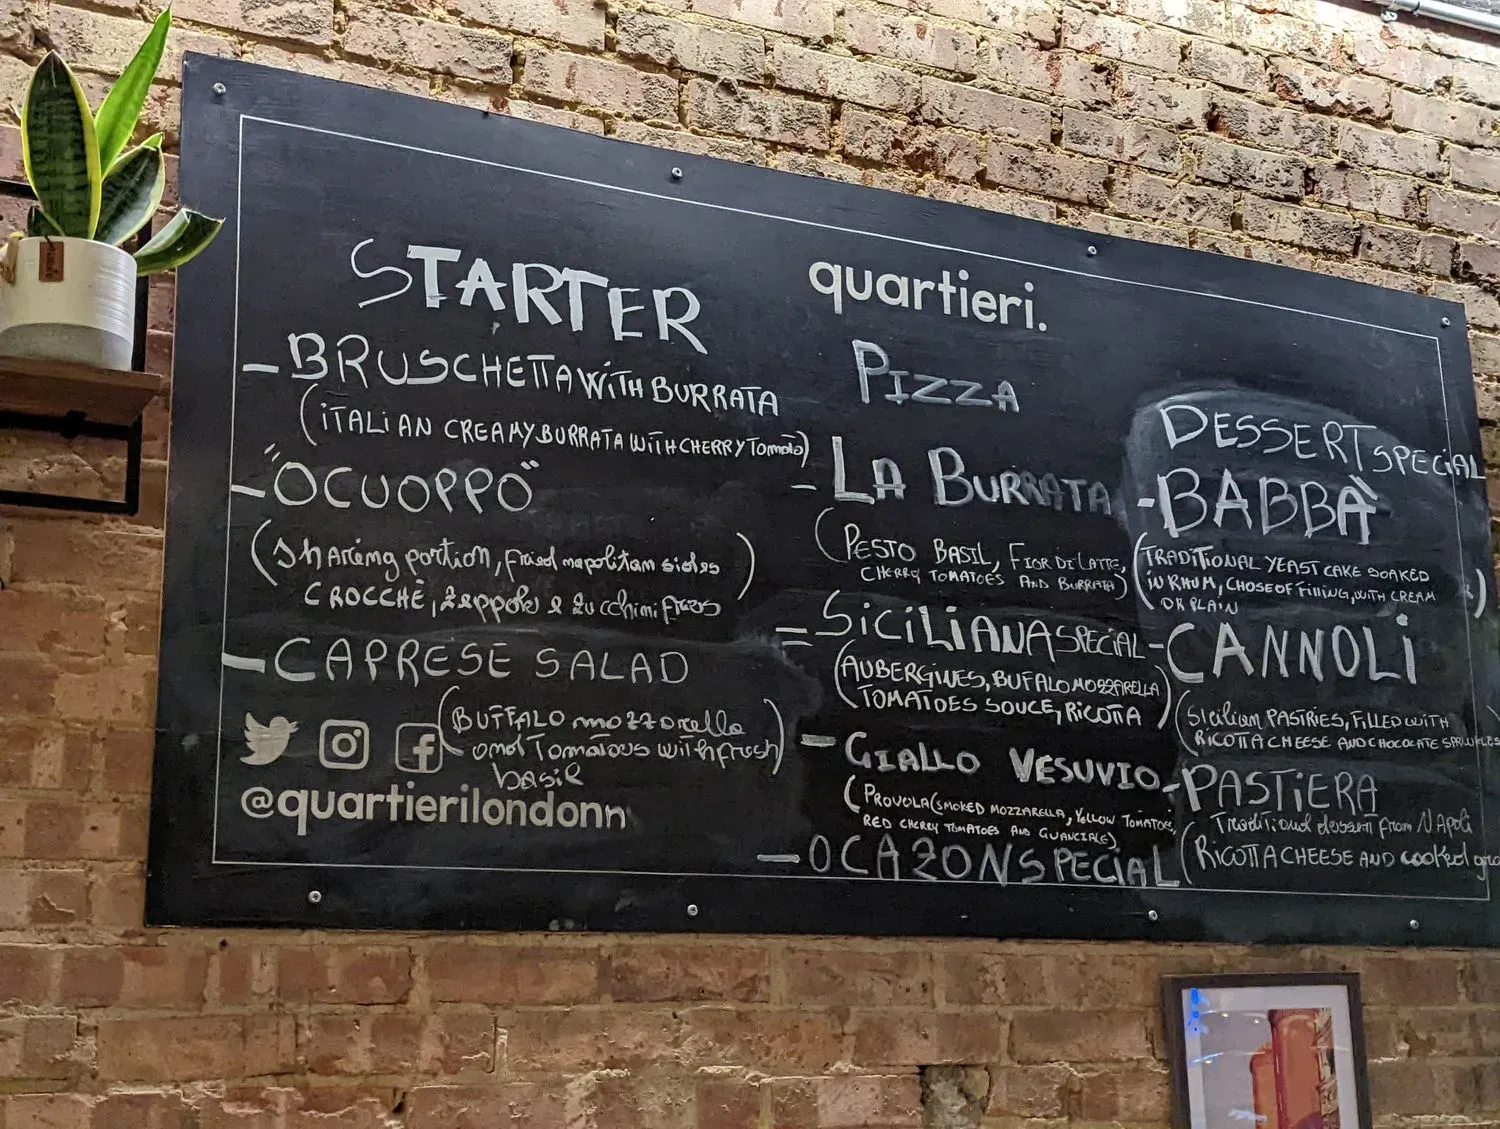 STARTER
- BRUSCHETTA WITH BURRATA
(ITALIAN CREAMY BURRATA WITH CHERRY TOMATO)
- "OCUOPPO"
(Sharing portion, fried napolitan sides
CROCCHÈ, zeppole e zucchini fries)
- CAPRESE SALAD
(BUFFALO mozzarella
and Tomatous with fresh
basil)
@quartierilondonn
quartieri.
PIZZA
- LA BURRATA
(PESTO BASIL, FIOR DI LATTE,
CHERRY TOMATOES AND BURRATA)
- SICILIANA SPECIAL
(AUBERGINES, BUFALO MOZZARELLA
TOMATOES SOUCE, RICOTTA)
- GIALLO VESUVIO
(PROVOLA (SMOKED MOZZARELLA, YELLOW TOMATOES,
RED CHERRY TOMATOES AND GUANCIALE)
- OCAZON SPECIAL
DESSERT SPECIAL
- BABBÀ
(TRADITIONAL YEAST CAKE SOAKED
IN RHUM, CHOSE OF FILLING, WITH CREAM
OR PLAIN)
- CANNOLI
(SICILIAN PASTRIES, FILLED WITH
RICOTTA CHEESE AND CHOCOLATE SPRINKLES
- PASTIERA
Traditional dessert from NAPOLI
(RICOTTA CHEESE AND cooked